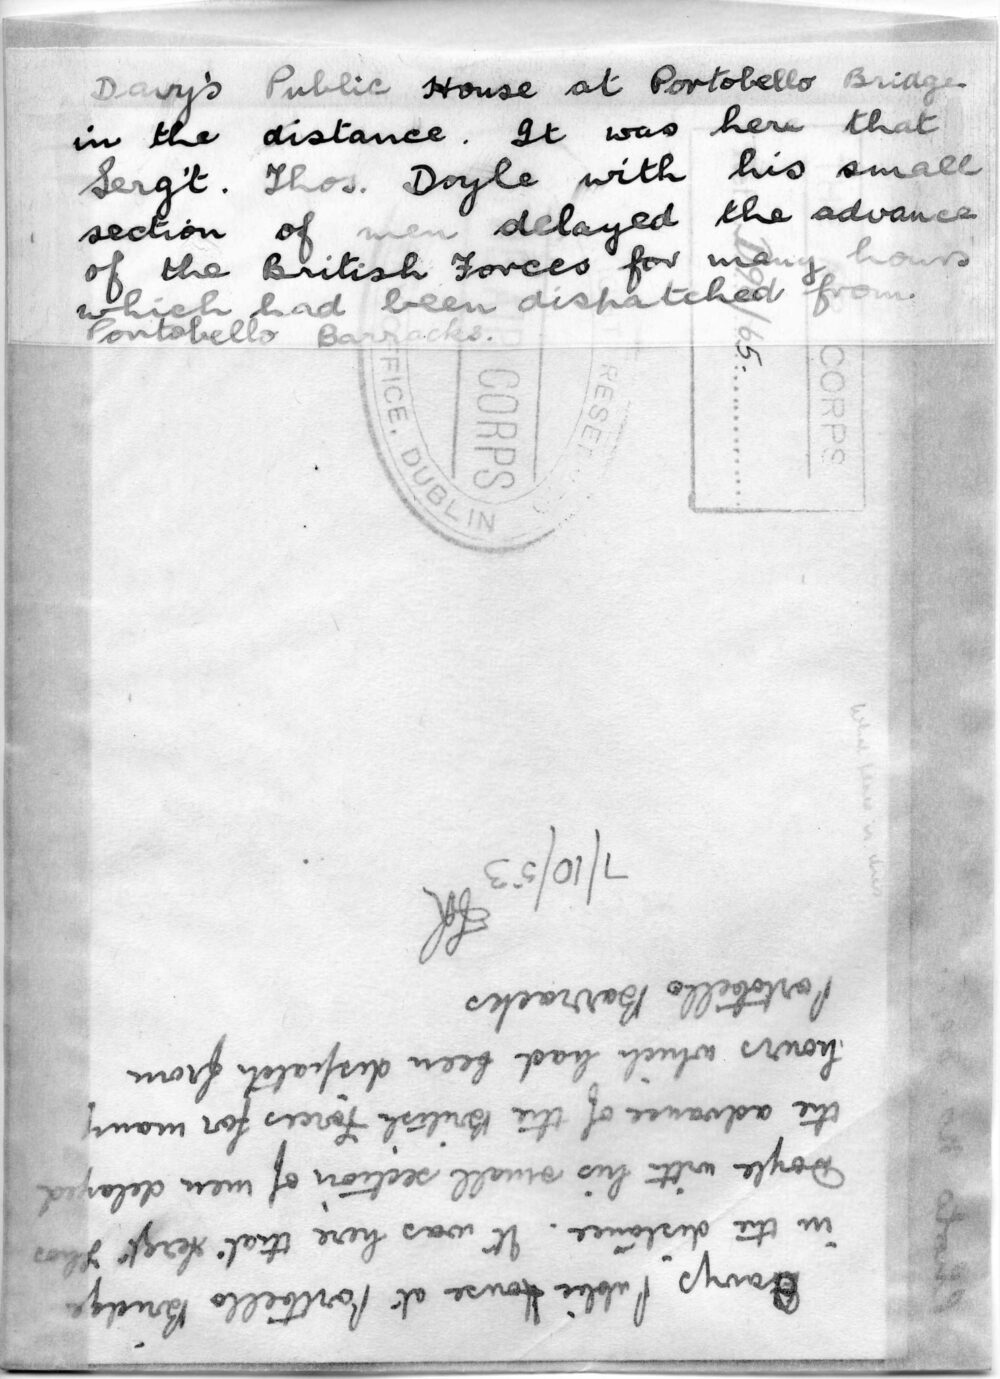 Davy's Public House at Portobello Bridge
in the distance. It was here that
Serg't. Thos. Doyle with his small
section of men delayed the advance
of the British Forces for many hours
which had been dispatched from
Portobello Barracks.
CORPS
FICE, DUBLIN
RESE
/65.
CORPS
Davys Public House at Portobello Bridge
in the distance. It was here that Sergt Thos
Doyle with his small section of men delayed
the advance of the British Forces for many
hours which had been dispatch from
Portobello Barracks
7/10/53